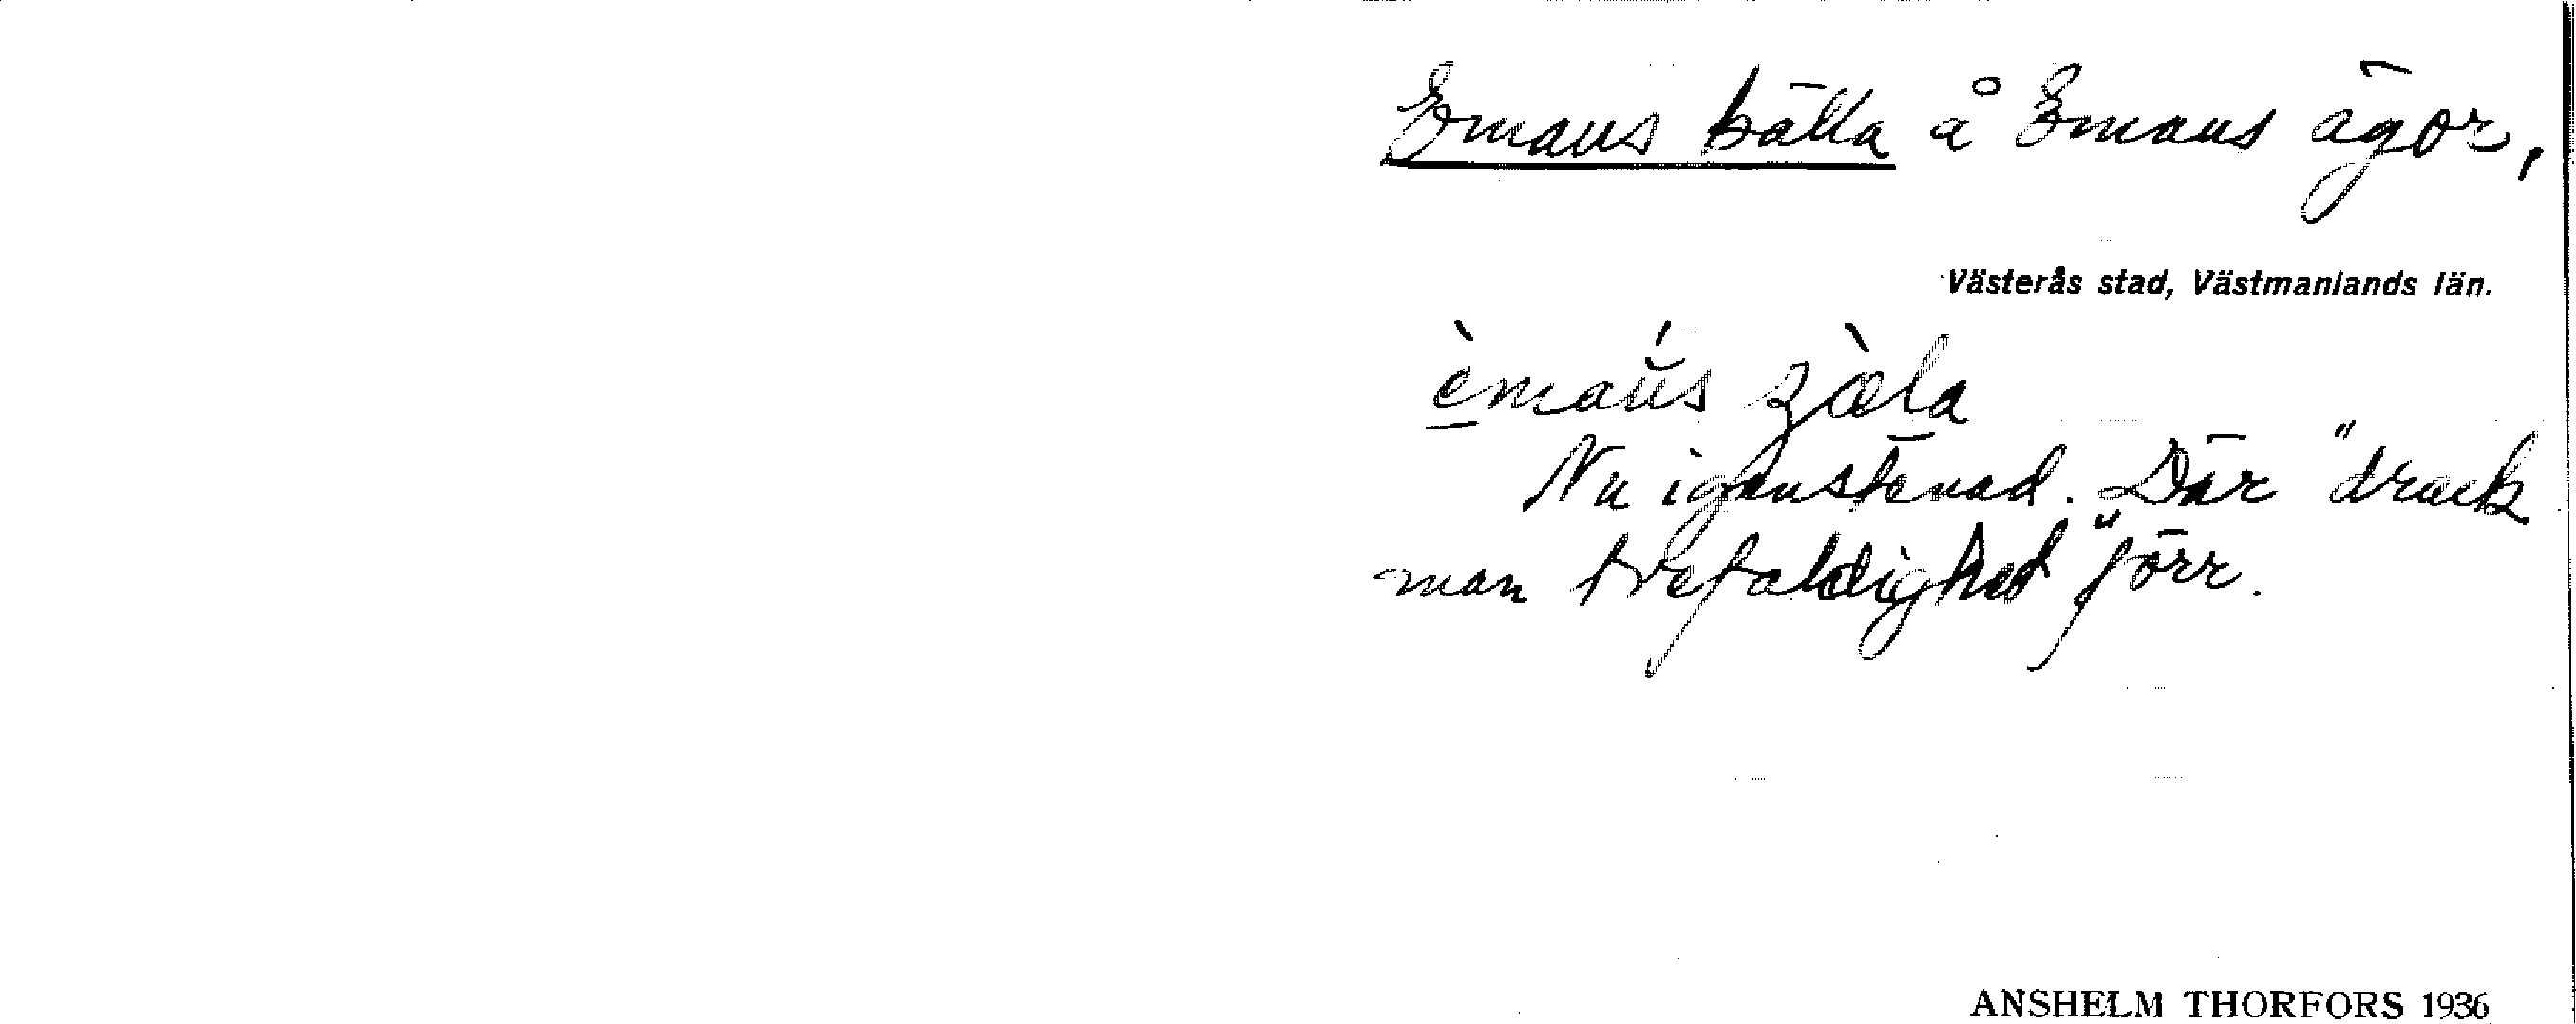 Emaus källa å Emaus ägor,
Västerås stad, Västmanlands län.
èmaús
Nu igenstenad. Där "drack
man trefaldighet" förr.
ANSHELM THORFORS 1936